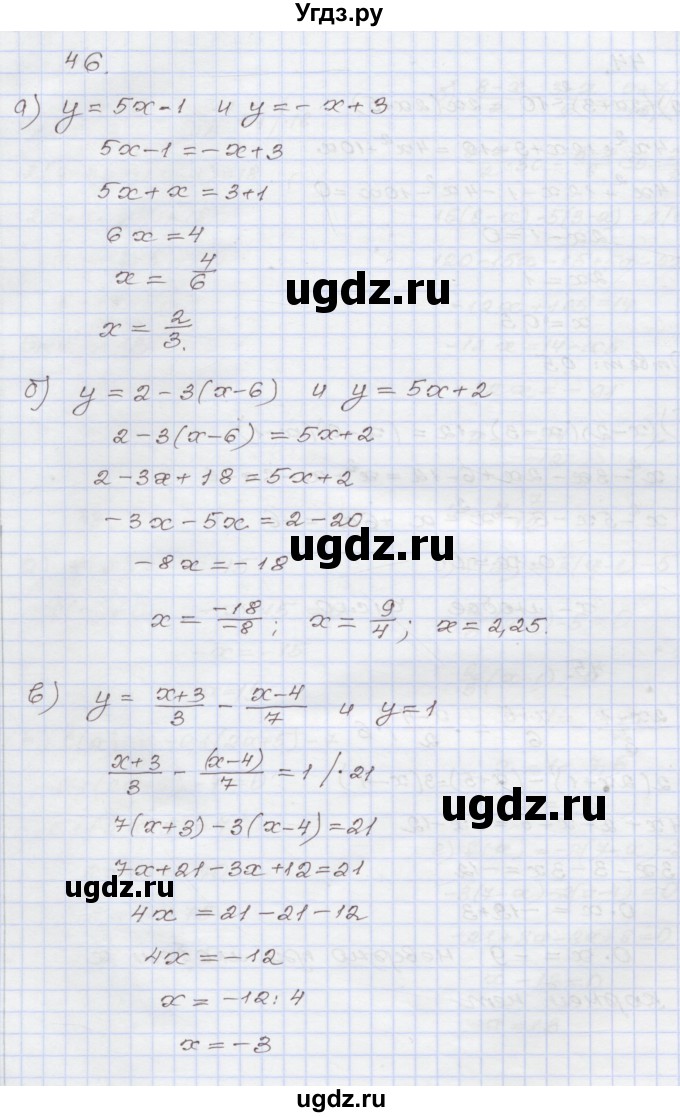 Угдз.ру
46.
а) y = 5x - 1 и y = - x + 3
5x - 1 = - x + 3
5x + x = 3 + 1
6x = 4
x = 4/6
ugdz.ru
x = 2/3.
б) y = 2 - 3(x - 6) и y = 5x + 2
2 - 3(x - 6) = 5x + 2
2 - 3x + 18 = 5x + 2
- 3x - 5x = 2 - 20
ugdz.ru
- 8x = - 18
x = -18/-8; x = 9/4; x = 2,25.
в) y = x+3/3 - x-4/7 и y = 1
x+3/3 - (x-4)/7 = 1 /·21
ugdz.ru
7(x+3) - 3(x-4) = 21
7x + 21 - 3x + 12 = 21
ugdz.ru
4x = 21 - 21 - 12
4x = - 12
x = - 12 : 4
x = - 3
ugdz.ru